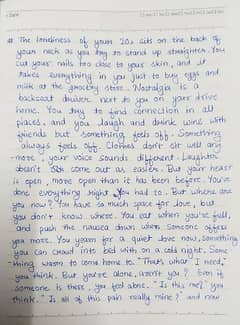 # The loneliness of your 20s sits on the back of
your neck as you try to stand up straighter. You
cut your nails too close to your skin, and it
takes everything in you just to buy eggs and
milk at the grocery store. Nostalgia is a
backseat driver next to you on your drive
home. You try to find connection in all
places, and you laugh and drink wine with
friends but something feels off. Something
always feels off. Clothes don't sit well any
-more, your voice sounds different. Laughter
doesn't come out as easier. But your heart
is open, more open than it has been before. You've
done everything right. You had to. But where are
you now? You have so much space for love, but
you don't know where. You eat when you're full,
and push the nausea down when someone offers
you more. You yearn for a quiet love now, something
you can crawl into bed with on a cold night. Some
-thing warm to come home to. "That's what I need,"
you think. But you're alone, aren't you? Even if
someone is there, you feel alone. "Is this me?" you
think. "Is all of this pain really mine?" and now